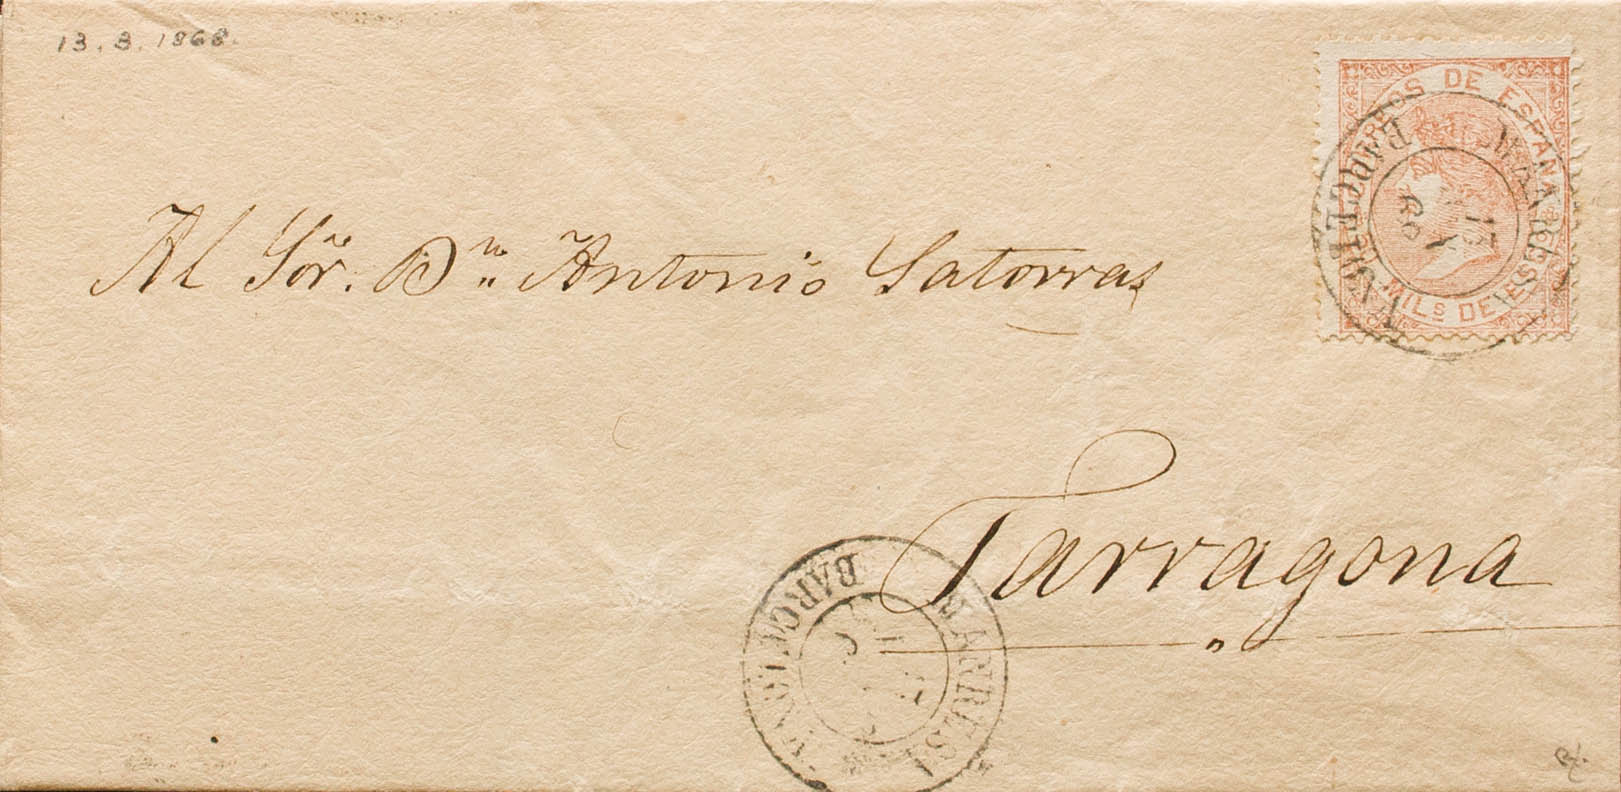 13.3.1868.
CORREOS DE ESPAÑA
MILs DE
MANRESA
BARCELONA
13
68
Al Sór. Dn. Antonio Satorras
Tarragona
MANRESA
BARCELONA